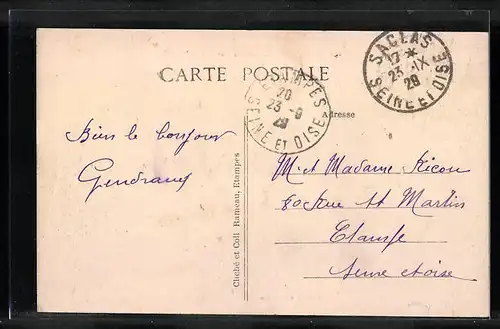 CARTE POSTALE
SACLAS
17 *
23 -IX
29
SEINE ET OISE
ETAMPES
20
23 -9
29
SEINE ET OISE
Adresse
Bien le bonjour
Gendraud
M. et Madame Ricou
80 Rue St Martin
Etampe
Seine et oise
Cliché et Coll. Rameau, Etampes